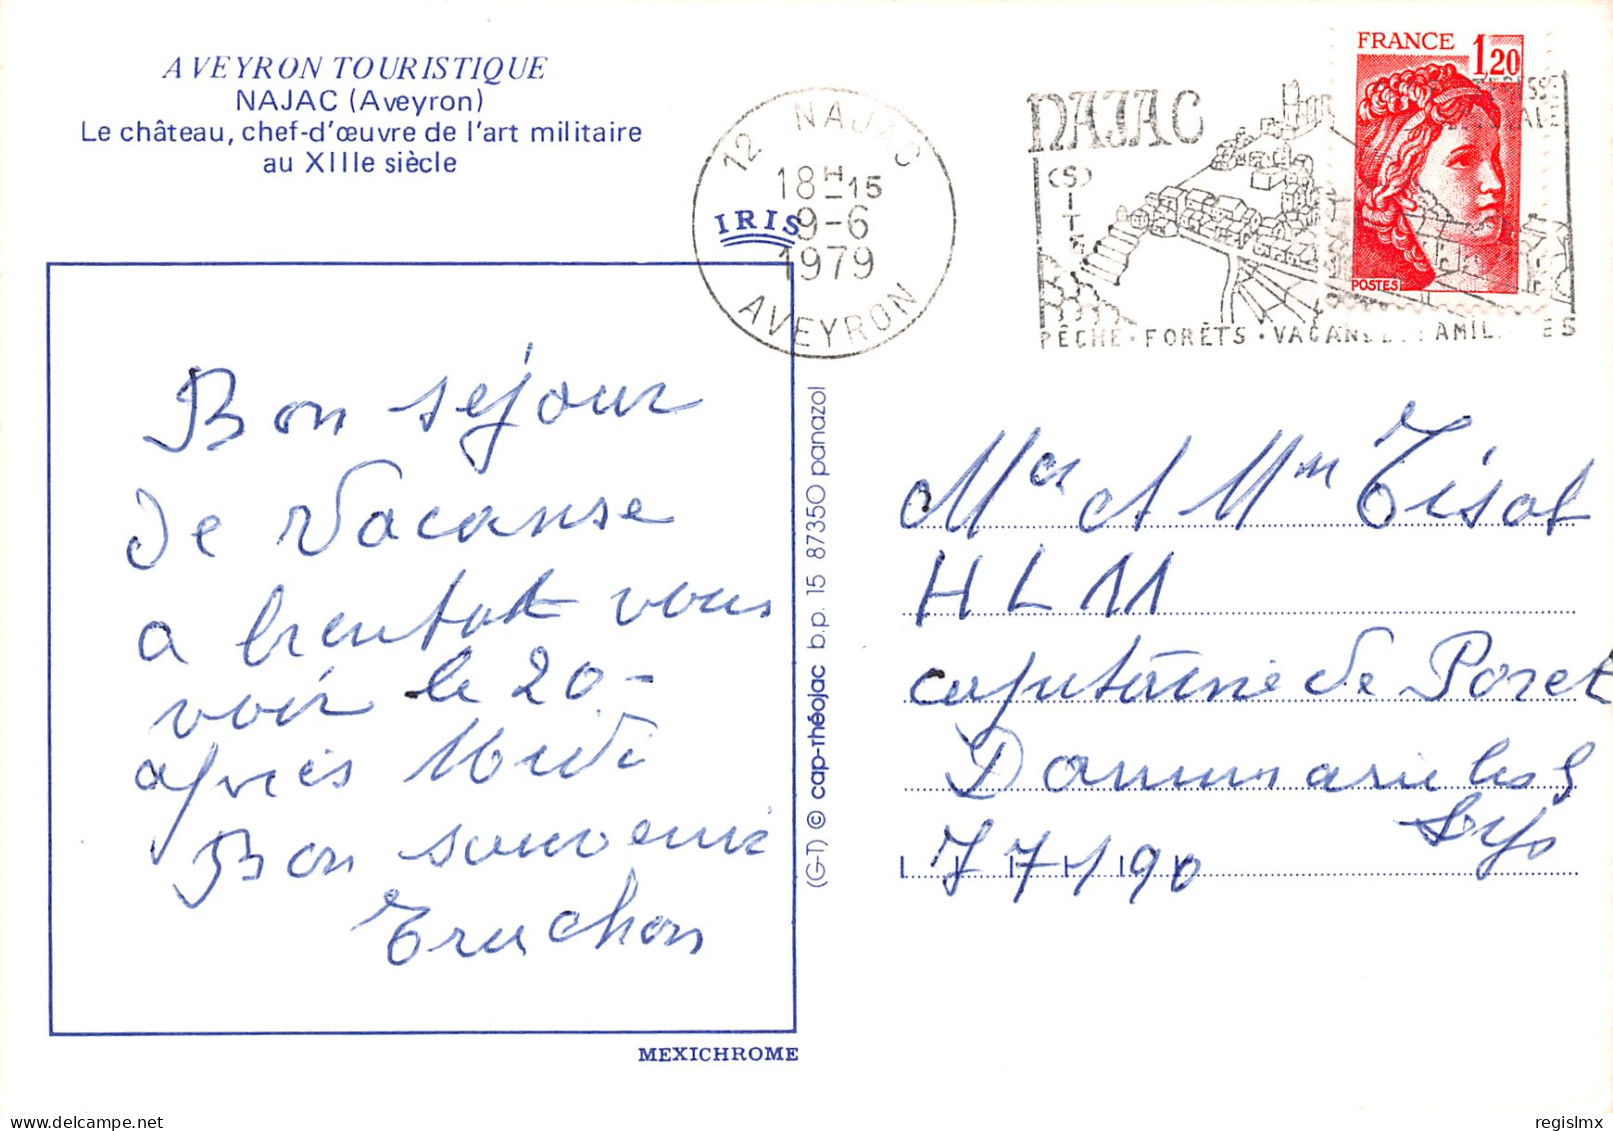 AVEYRON TOURISTIQUE
NAJAC (Aveyron)
Le château, chef-d'œuvre de l'art militaire
au XIIIe siècle
IRIS
12 NAJAC
18H-15
9-6
1979
AVEYRON
NAJAC
(S)ITE
PÊCHE · FORÊTS ·
FRANCE 1,20
POSTES
Bon séjour
de vacanse
a bientot vous
voir le 20-
après Midi
Bon souvenir
Truchon
(G-T) © cap-théojac b.p. 15 87350 panazol
Mr et Mm Tisot
HLM
capitaine de Poret
Dammarie les
Lys
77190
MEXICHROME
delcampe.net
regislmx